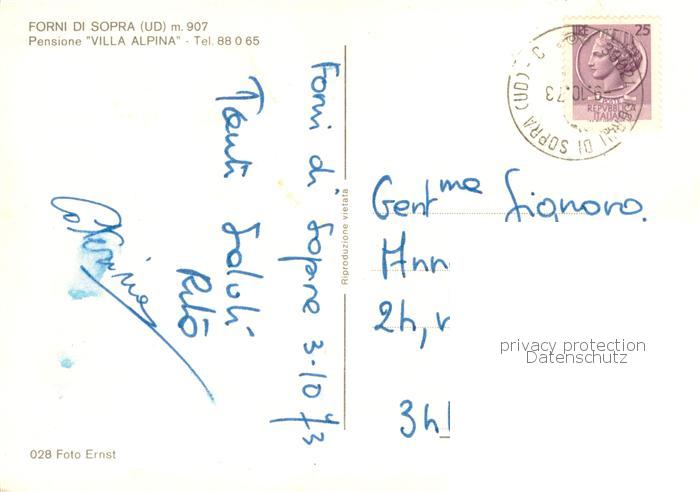 FORNI DI SOPRA (UD) m. 907
Pensione "VILLA ALPINA" - Tel. 88 0 65
Forni di Sopra 3-10-73
Tanti Saluti
Rita
Caterina
Riproduzione vietata
LIRE 25
REPUBBLICA
ITALIANA
FORNI DI SOPRA (UD) - C
-9.10.73
Gent.ma Signora.
Ann
2h, v
3h
privacy protection
Datenschutz
028 Foto Ernst